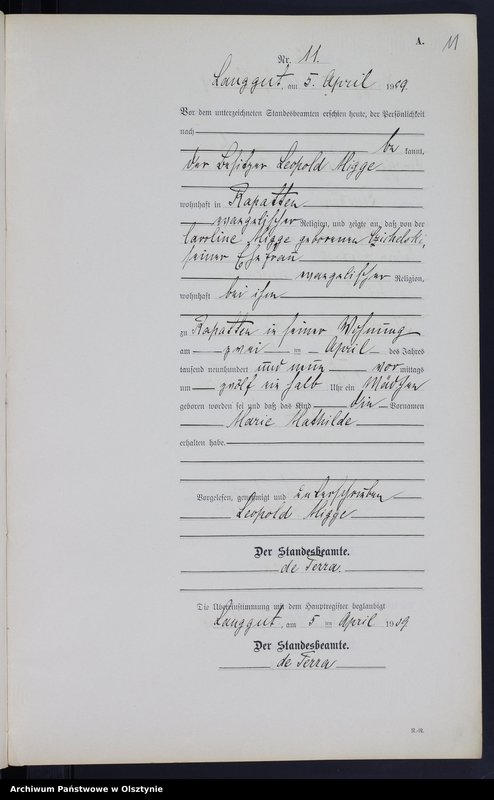 A.
11
Nr. 11.
Langgut, am 5. April 1909.
Vor dem unterzeichneten Standesbeamten erschien heute, der Persönlichkeit
nach
be kannt,
der Besitzer Leopold Migge
wohnhaft in Rapatten
evangelischer Religion, und zeigte an, daß von der
Caroline Migge geborenen
seiner Ehefrau
evangelischer Religion,
wohnhaft bei ihm
zu Rapatten in seiner Wohnung
am zwei ten April des Jahres
tausend neunhundert und neun vor mittags
um zwölf ein halb Uhr ein Mädchen
geboren worden sei und daß das Kind die Vornamen
Marie Mathilde
erhalten habe.
Vorgelesen, genehmigt und unterschrieben
Leopold Migge
Der Standesbeamte.
de Terra.
Die Übereinstimmung mit dem Hauptregister beglaubigt
Langgut, am 5 ten April 1909
Der Standesbeamte.
de Terra
R.-R.
Archiwum Państwowe w Olsztynie